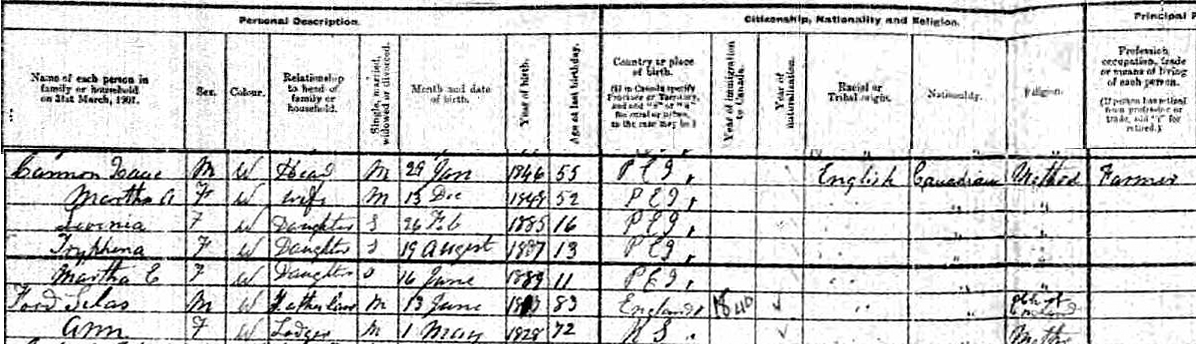 Personal Description. Citizenship, Nationality and Religion. Principal
Name of each person in family or household on 31st March, 1901. Sex. Colour. Relationship to head of family or household. Single, married, widowed or divorced. Month and date of birth. Year of birth. Age at last birthday. Country or place of birth. (If in Canada specify Province or Territory, and add "r" or "u" for rural or urban, as the case may be.) Year of immigration to Canada. Year of naturalization. Racial or Tribal origin. Nationality. Religion. Profession, occupation, trade or means of living of each person. (If person has retired from profession or trade, add "r" for retired.)
Cannon Isaac M W Head M 29 Jan 1846 55 P E I r English Canadian Method Farmer
Martha A F W Wife M 13 Dec 1848 52 P E I r " "
Lovinia F W Daughter S 26 Feb 1885 16 P E I r " "
Tryphena F W Daughter S 19 August 1887 13 P E I r " "
Martha E F W Daughter S 16 June 1889 11 P E I r " "
Ford Silas M W Father Law M 13 June 83 England 1840 " " Ch of England
Ann F W Lodger M 1 May 1828 72 N S " Metho